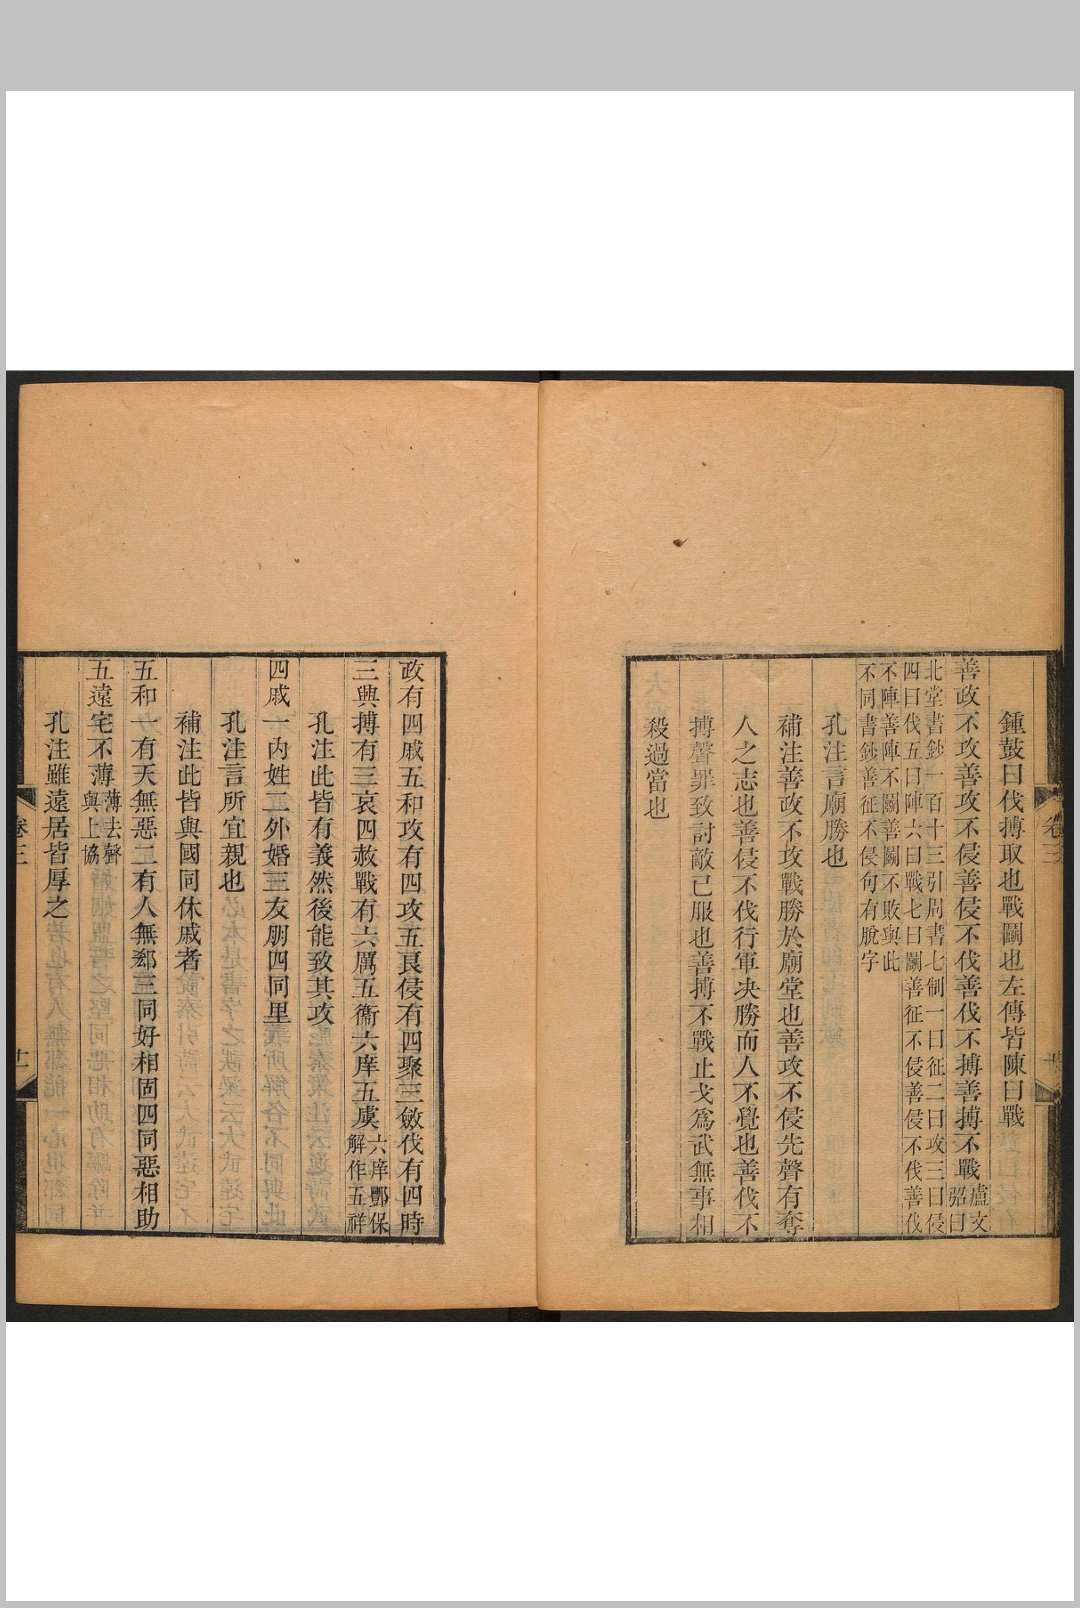 鍾鼓曰伐搏取也戰鬭也左傳皆陳曰戰
善政不攻善攻不侵善侵不伐善伐不搏善搏不戰
盧文
弨曰
北堂書鈔一百十三引周書七制一曰征二曰攻三曰侵
四曰伐五曰陣六曰戰七曰鬭善征不侵善侵不伐善伐
不陣善陣不鬭善鬭不敗與此
不同書鈔善征不侵句有脫字
孔注言廟勝也
補注善政不攻戰勝於廟堂也善攻不侵先聲有奪
人之志也善侵不伐行軍決勝而人不覺也善伐不
搏聲罪致討敵已服也善搏不戰止戈爲武無事相
殺過當也
卷三
政有四戚五和攻有四攻五良侵有四聚三斂伐有四時
三興搏有三哀四赦戰有六厲五衞六庠五虞
六庠酆保
解作五祥
孔注此皆有義然後能致其攻
四戚一內姓二外婚三友朋四同里
孔注言所宜親也
補注此皆與國同休戚者
五和一有天無惡二有人無郄三同好相固四同惡相助
五遠宅不薄
薄去聲
與上協
孔注雖遠居皆厚之
卷三
十一